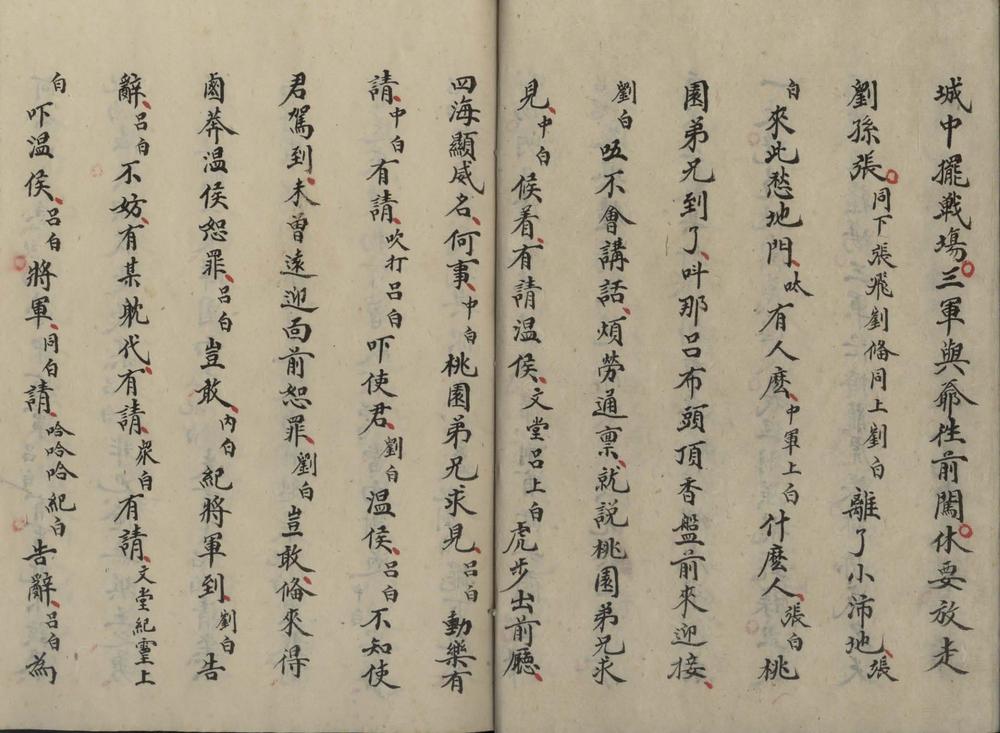 城中擺戰塲三軍與爺徃前闖休要放走
劉孫張同下張飛劉俻同上劉白離了小沛地張
白來此愁地門呔有人麽中軍上白什麽人張白桃
園弟兄到了呌那呂布頭頂香盤前來迎接
劉白㕶不會講話煩勞通禀就說桃園弟兄求
見中白候着有請温侯文堂呂上白虎步出前廳
四海顯威名何事中白桃園弟兄求見呂白動樂有
請中白有請吹打呂白吓使君劉白温侯呂白不知使
君駕到未曾遠迎面前恕罪劉白豈敢俻來得
鹵莽温侯恕罪呂白豈敢内白紀將軍到劉白告
辭呂白不妨有某躭代有請衆白有請文堂紀霊上
白吓温侯呂白將軍同白請哈哈哈紀白告辭呂白為